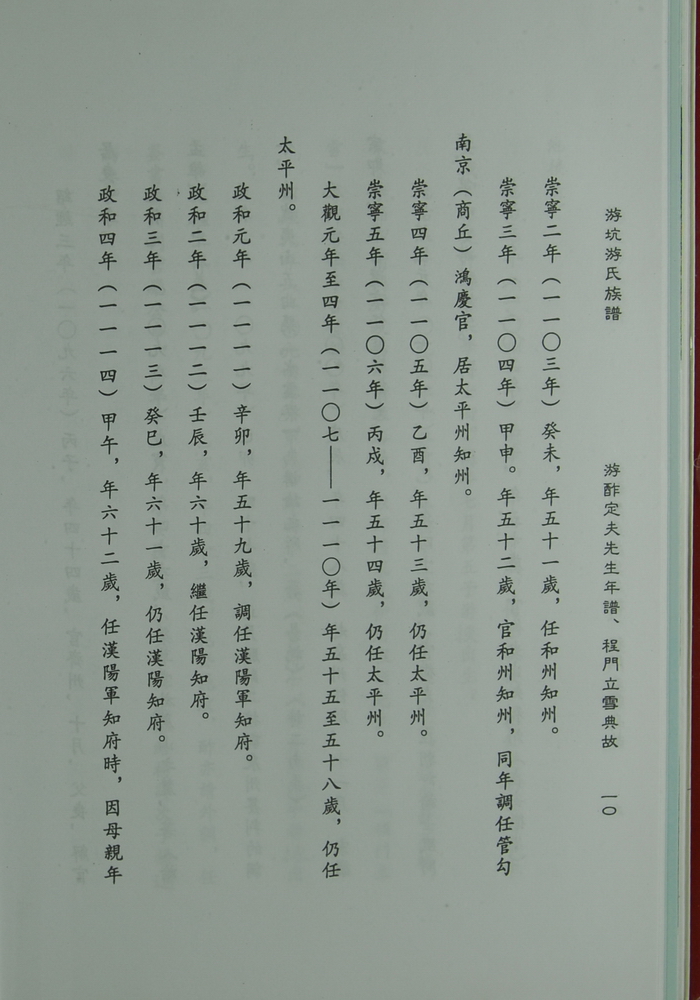 游坑游氏族譜
游酢定夫先生年譜、程門立雪典故
一〇
崇寧二年（一一〇三年）癸未，年五十一歲，任和州知州。
崇寧三年（一一〇四年）甲申。年五十二歲，官和州知州，同年調任管勾
南京（商丘）鴻慶官，居太平州知州。
崇寧四年（一一〇五年）乙酉，年五十三歲，仍任太平州。
崇寧五年（一一〇六年）丙戌，年五十四歲，仍任太平州。
大觀元年至四年（一一〇七——一一一〇年）年五十五至五十八歲，仍任
太平州。
政和元年（一一一一）辛卯，年五十九歲，調任漢陽軍知府。
政和二年（一一一二）壬辰，年六十歲，繼任漢陽知府。
政和三年（一一一三）癸巳，年六十一歲，仍任漢陽知府。
政和四年（一一一四）甲午，年六十二歲，任漢陽軍知府時，因母親年